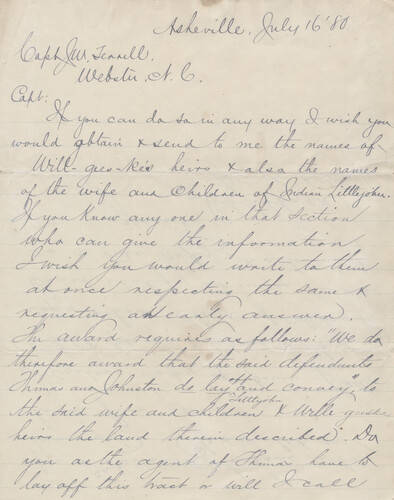 Asheville, July 16 '80
Capt. J.W. Terrell.
Webster, N.C.
Capt:
If you can do so in any way I wish you
would obtain & send to me the names of
Will-ges-kes heirs & also the names
of the wife and Children of Indian Littlejohn.
If you Know any one in that Section
who can give the information
I wish you would write to them
at once respecting the same &
requesting an early answer.
The award requires as follows: "We do
therefore award that the said defendants
Thomas and Johnston do lay off and convey" to
the said wife and children of Littlejohn & Will-
heirs the land therein described". Do
you as the agent of Thomas have to
lay off this tract or will I call